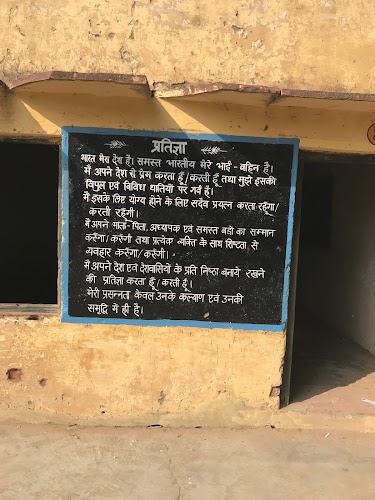 प्रतिज्ञा
भारत मेरा देश है। समस्त भारतीय मेरे भाई - बहिन है।
मैं अपने देश से प्रेम करता हूँ / करती हूँ तथा मुझे इसकी
विपुल एवं विविध थातियों पर गर्व है।
मैं इसके लिए योग्य होने के लिए सदैव प्रयत्न करता रहूँगा/
करती रहूँगी।
मैं अपने माता-पिता, अध्यापक एवं समस्त बड़ो का सम्मान
करूँगा/ करूँगी तथा प्रत्येक व्यक्ति के साथ शिष्टता से
व्यवहार करूँगा/ करूँगी।
मैं अपने देश एवं देशवासियों के प्रति निष्ठा बनाये रखने
की प्रतिज्ञा करता हूँ / करती हूँ।
मेरी प्रसन्नता केवल उनके कल्याण एवं उनकी
समृद्धि में ही है।